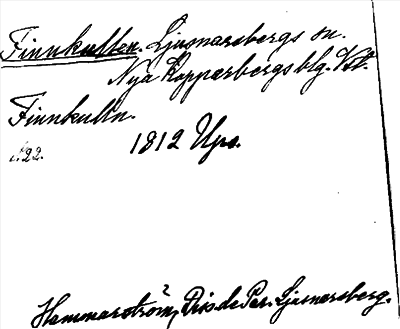 Finnkullen. Ljusnarsbergs sn.
Nya Kopparbergs blg. Vstm.
Finnkulln.
s. 22.
1812 Ups.
Hammarström, Dis. de Par. Ljusnarsberg.